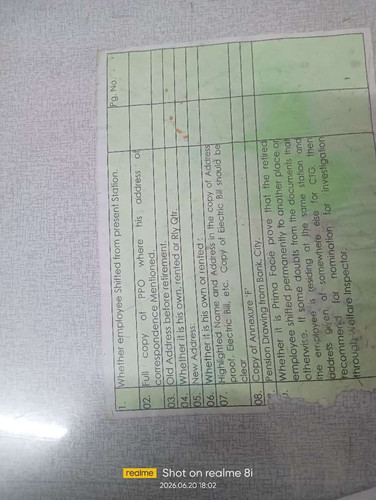 1. Whether employee Shifted from present Station. Pg. No.
02. Full copy of PPO where his address of
correspondence Mentioned.
03. Old Address before retirement.
04. Whether it is his own, rented or Rly Qtr.
05. New Address:
06. Whether it is his own or rented :
07. Highlighted Name and Address in the copy of Address
proof, Electric Bill, etc. Copy of Electric Bill should be
clear
08. Copy of Annexure 'F'
Pension Drawing from Bank, City.
Whether it is Prima Facie prove that the retired
employee shifted permanently to another place or
otherwise. If some doubts from the documents that
the employee is residing at the same station and
address given of somewhere else for CTG, then
recommended for nomination for investigation
through welfare inspector
realme Shot on realme 8i
2026.06.20 18:02